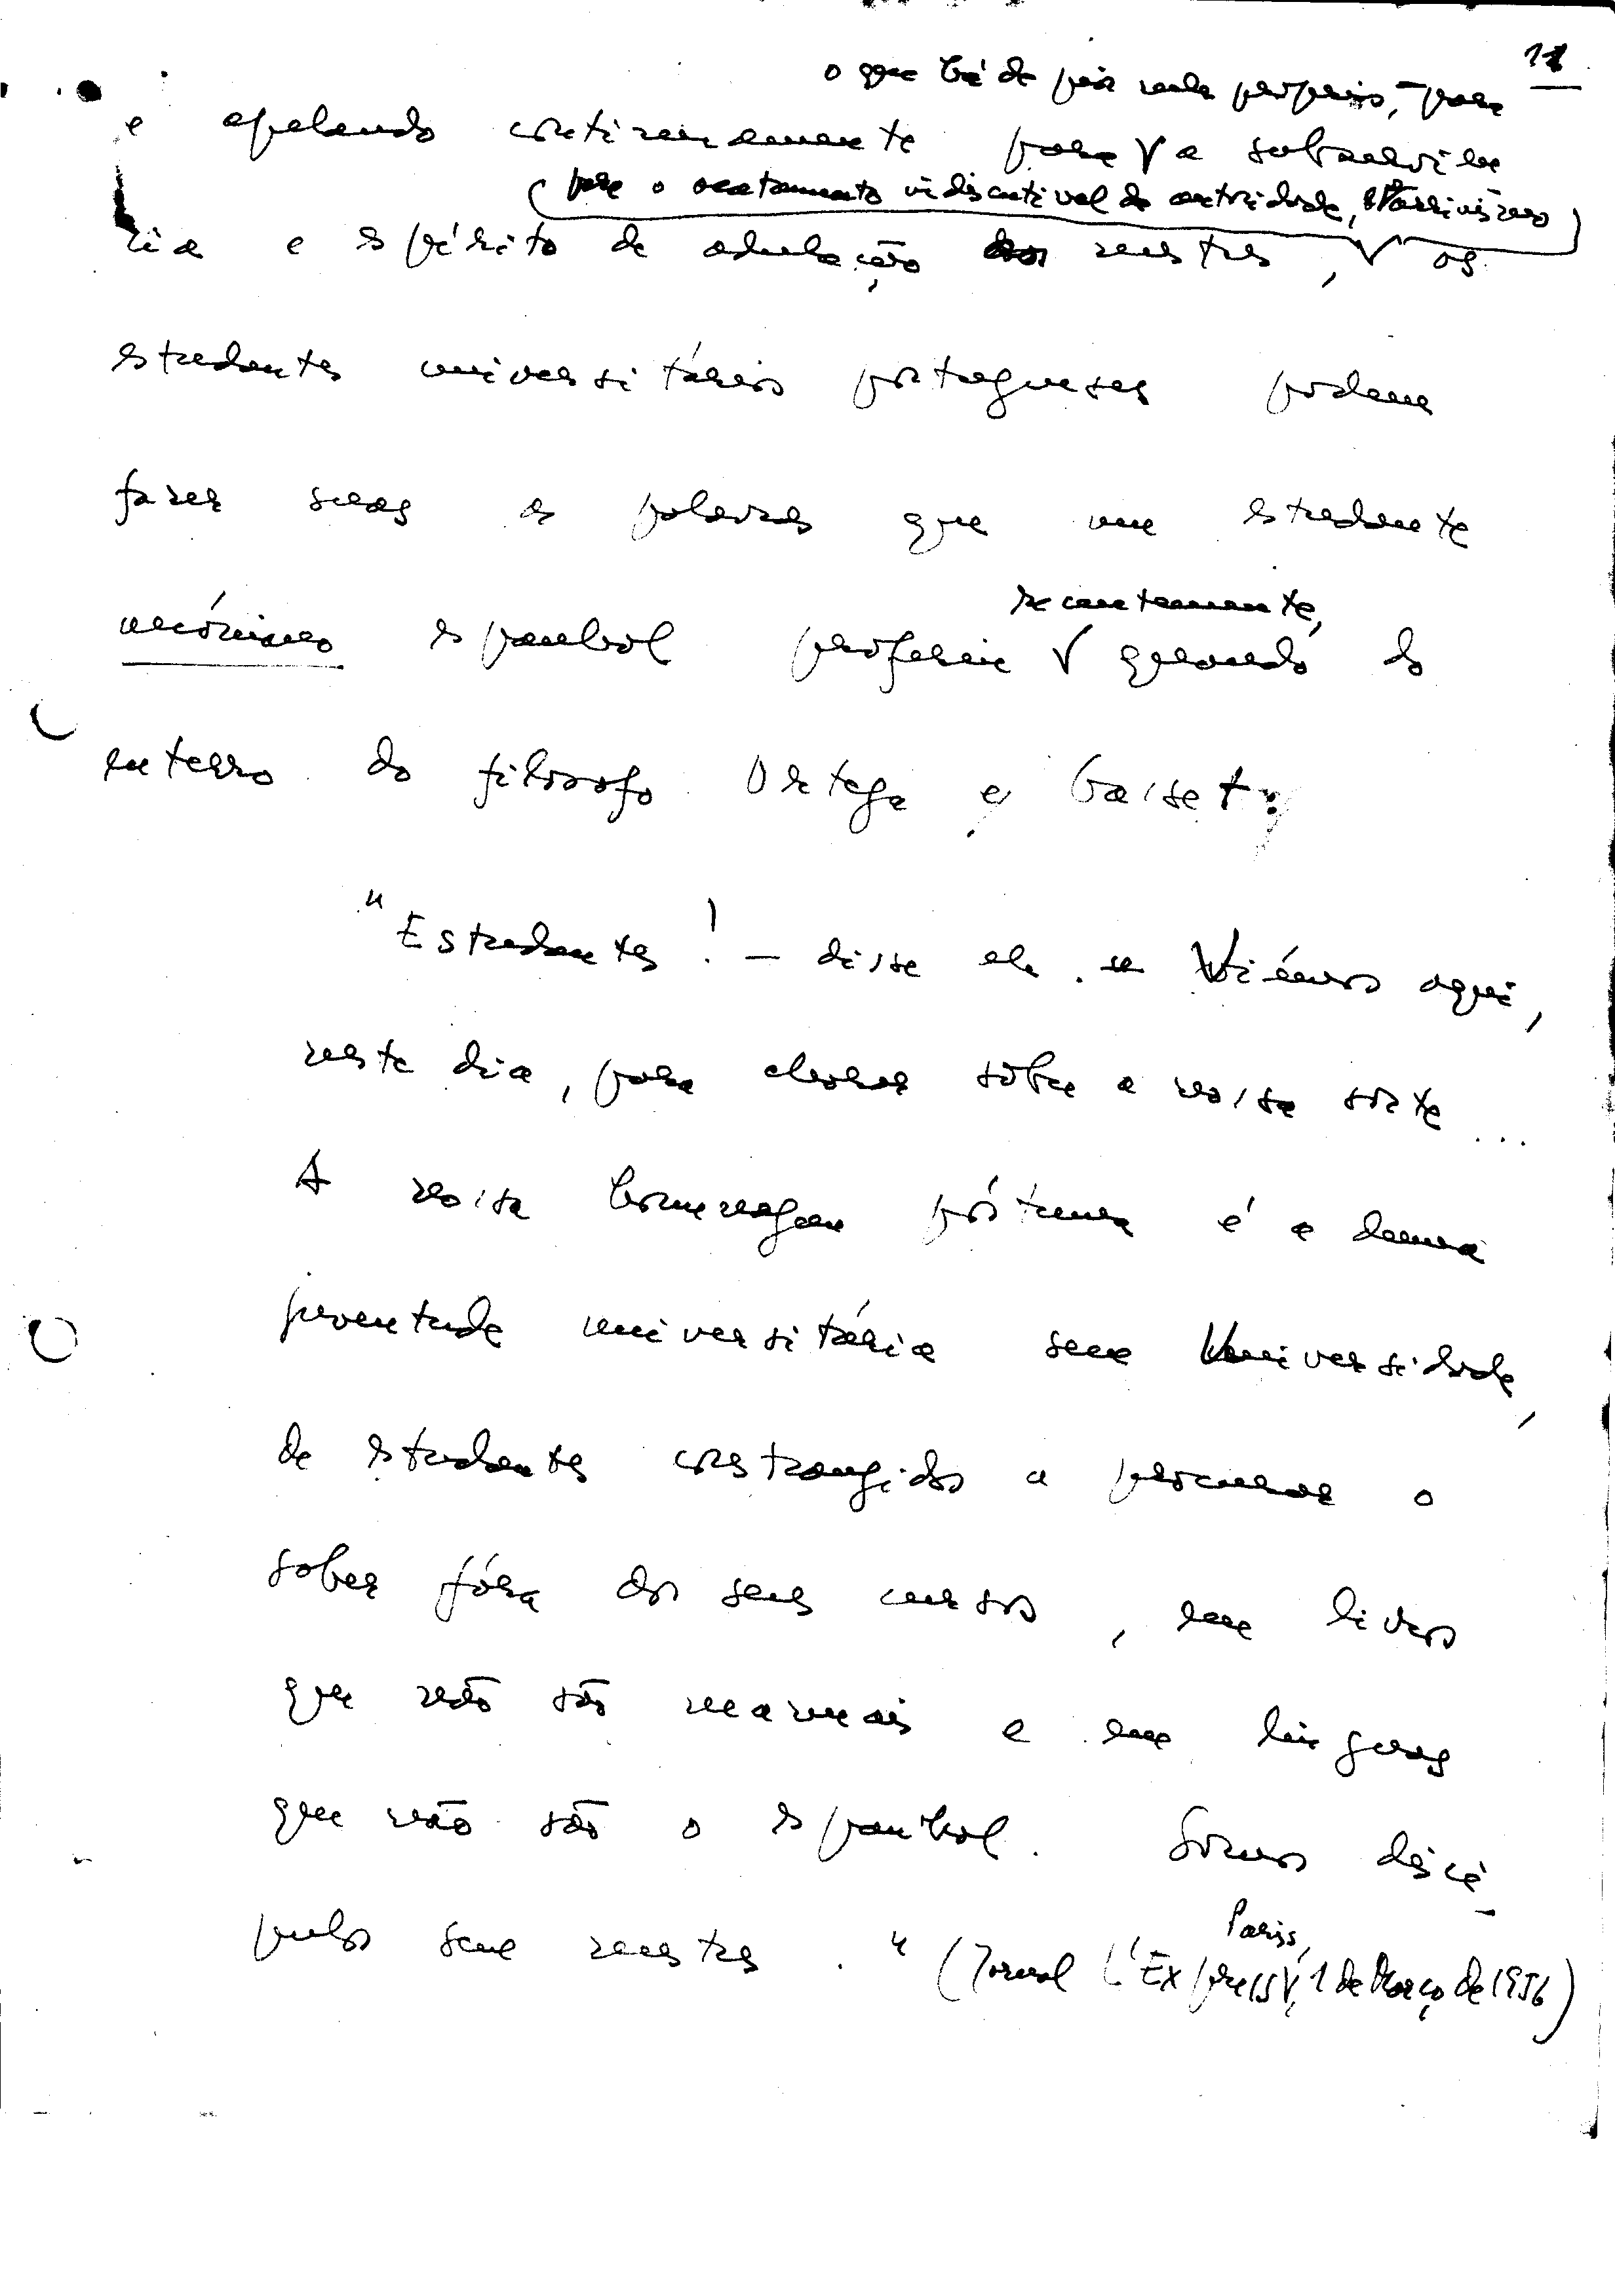 11
o que há de pior nele próprio, – para
e apelando continuamente para a subserviên
para o acatamento indiscutível da autoridade,
cia e espírito de adulação dos mestres, os
estudantes universitários portugueses podem
fazer suas as palavras que um estudante
anónimo espanhol proferiu quando do
recentemente,
enterro do filósofo Ortega y Gasset:
"Estudantes! – disse ele – Viémos aqui,
neste dia, para chorar sôbre a nossa sorte...
A nossa homenagem póstuma é a duma
juventude universitária sem Universidade,
de estudantes constrangidos a procurar o
saber fóra dos seus cursos, em livros
que não são manuais e em línguas
que não são o espanhol. Somos discí-
pulos sem mestres." (Jornal L'Express, 1 de Março de 1956)
Paris,